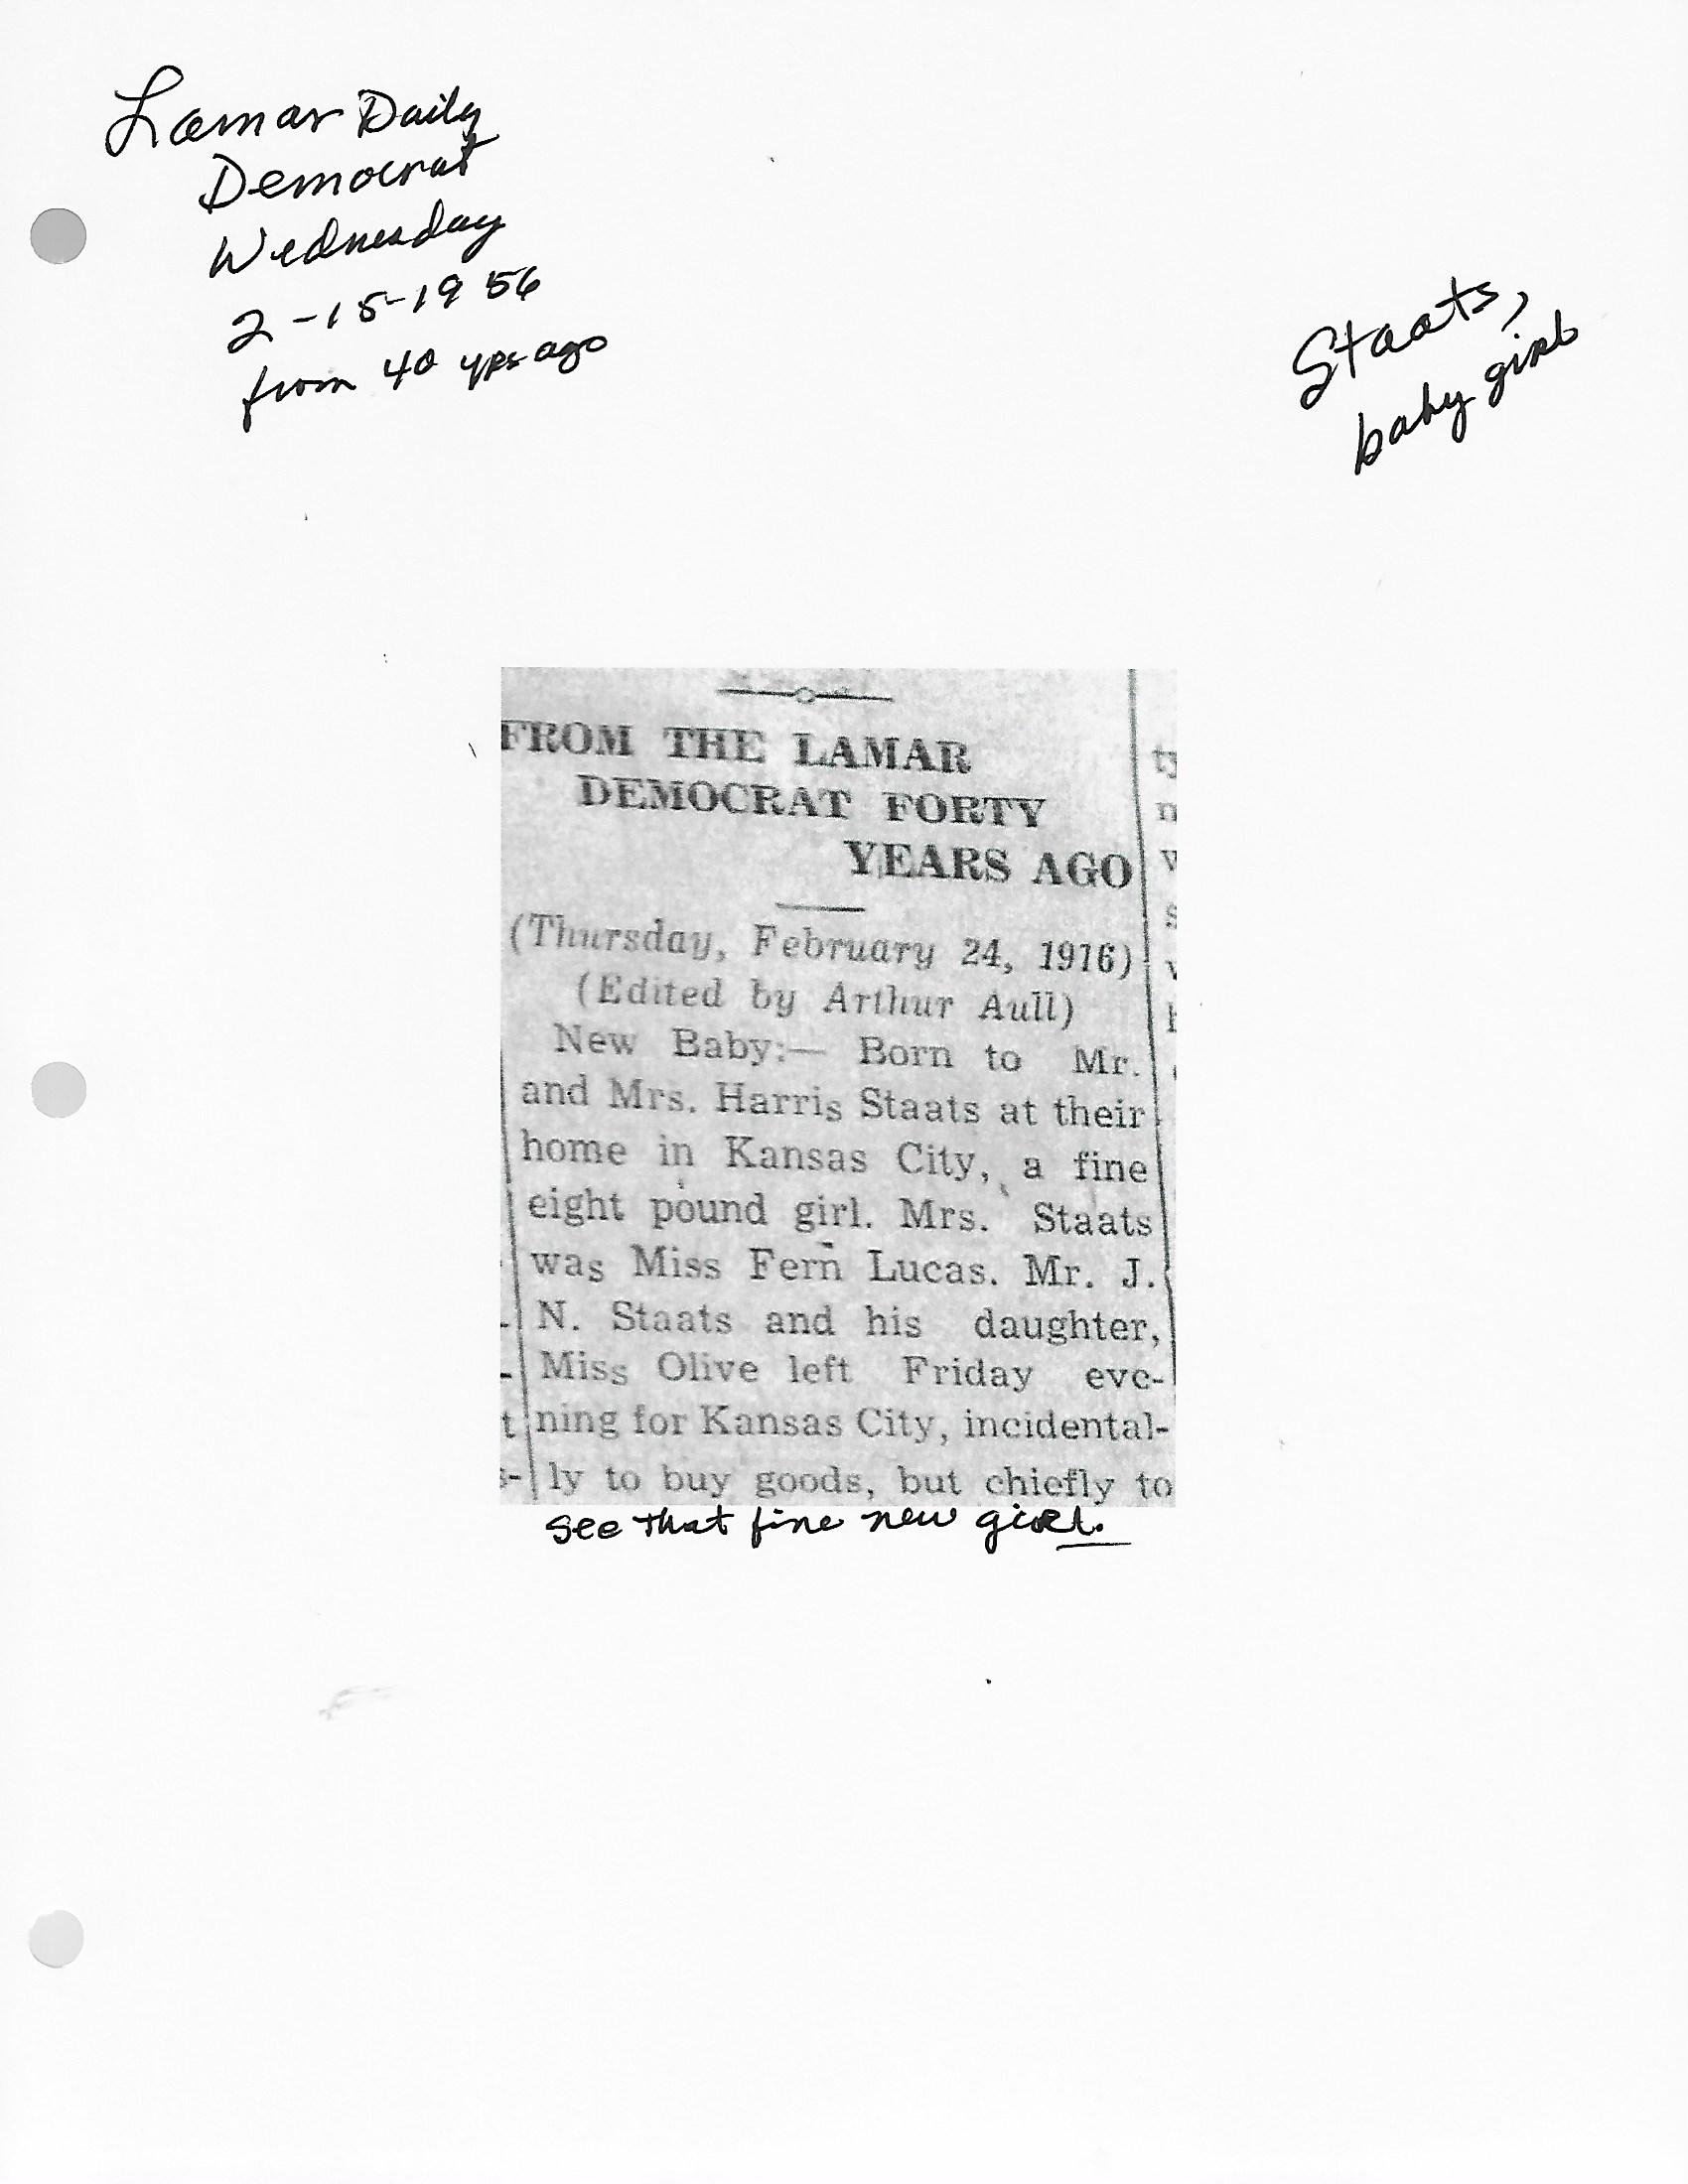 Lamar Daily
Democrat
Wednesday
2-15-1956
from 40 yrs ago
Staats,
baby girl
FROM THE LAMAR
DEMOCRAT FORTY
YEARS AGO
(Thursday, February 24, 1916)
(Edited by Arthur Aull)
New Baby:— Born to Mr.
and Mrs. Harris Staats at their
home in Kansas City, a fine
eight pound girl. Mrs. Staats
was Miss Fern Lucas. Mr. J.
N. Staats and his daughter,
Miss Olive left Friday eve-
ning for Kansas City, incidental-
ly to buy goods, but chiefly to
see that fine new girl.